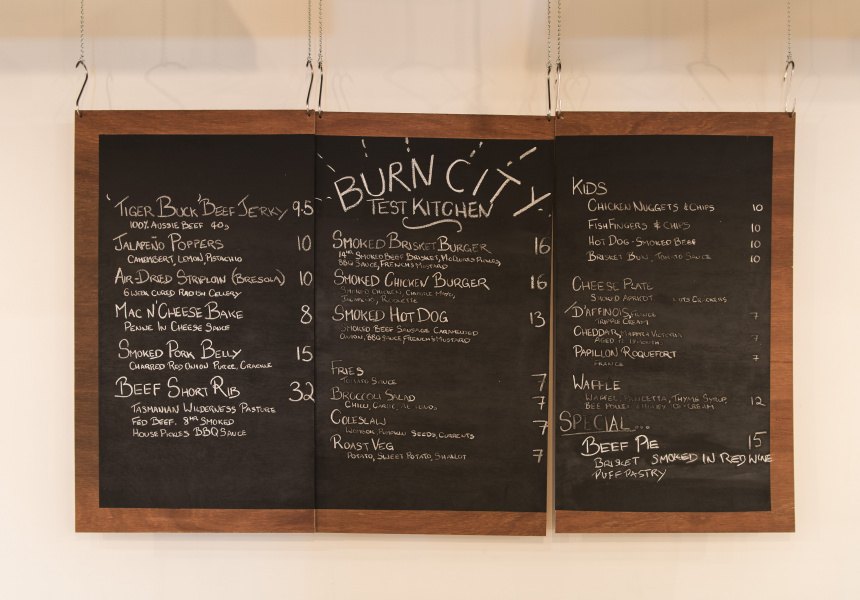 'Tiger Buck' Beef Jerky 9.5
100% Aussie Beef 40g
Jalapeño Poppers 10
Camembert, Lemon, Pistachio
Air-Dried Striploin (Bresola) 10
6 Week Cured Radish Cellery
Mac N' Cheese Bake 8
Penne In Cheese Sauce
Smoked Pork Belly 15
Charred Red Onion Puree, Crackle
Beef Short Rib 32
Tasmanian Wilderness Pasture
Fed Beef. 8hr Smoked
House Pickles BBQ Sauce
Burn City
Test Kitchen
Smoked Brisket Burger 16
14hr Smoked Beef Brisket, McClures Pickles,
BBQ Sauce, French's Mustard
Smoked Chicken Burger 16
Smoked Chicken, Chipotle Mayo,
Jalapeno, Roquette
Smoked Hot Dog 13
Smoked Beef Sausage Caramelised
Onion, BBQ Sauce, French's Mustard
Fries 7
Tomato Sauce
Broccoli Salad 7
Chilli, Garlic, Almonds
Coleslaw 7
Wombok, Pumpkin Seeds, Currants
Roast Veg 7
Potato, Sweet Potato, Shallot
Kids
Chicken Nuggets & Chips 10
Fish Fingers & Chips 10
Hot Dog - Smoked Beef 10
Brisket Bun, Tomato Sauce 10
Cheese Plate
Smoked Apricot
D'Affinois, France 7
Triple Cream
Cheddar, Maffra Victoria 7
Aged
Papillon Roquefort 7
France
Waffle
Waffle, Pancetta, Thyme Syrup, 12
Ice-Cream
Special...
Beef Pie 15
Brisket Smoked in Red Wine
Puff Pastry